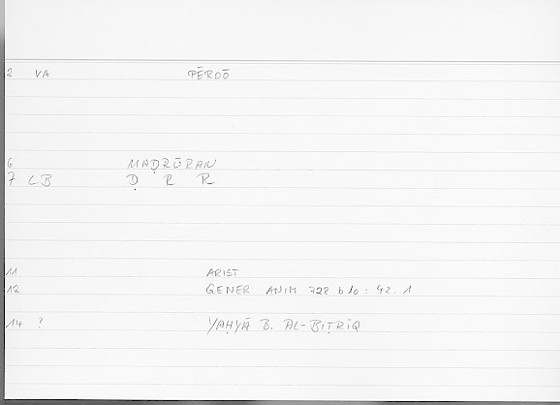 2 VA PĒRŌŌ
6 MAḌRŪRAN
7 LB Ḍ R R
11 ARIST
12 GENER ANIM 728 b 10 : 42.1
14 ? YAḤYĀ B. AL-BIṬRĪQ